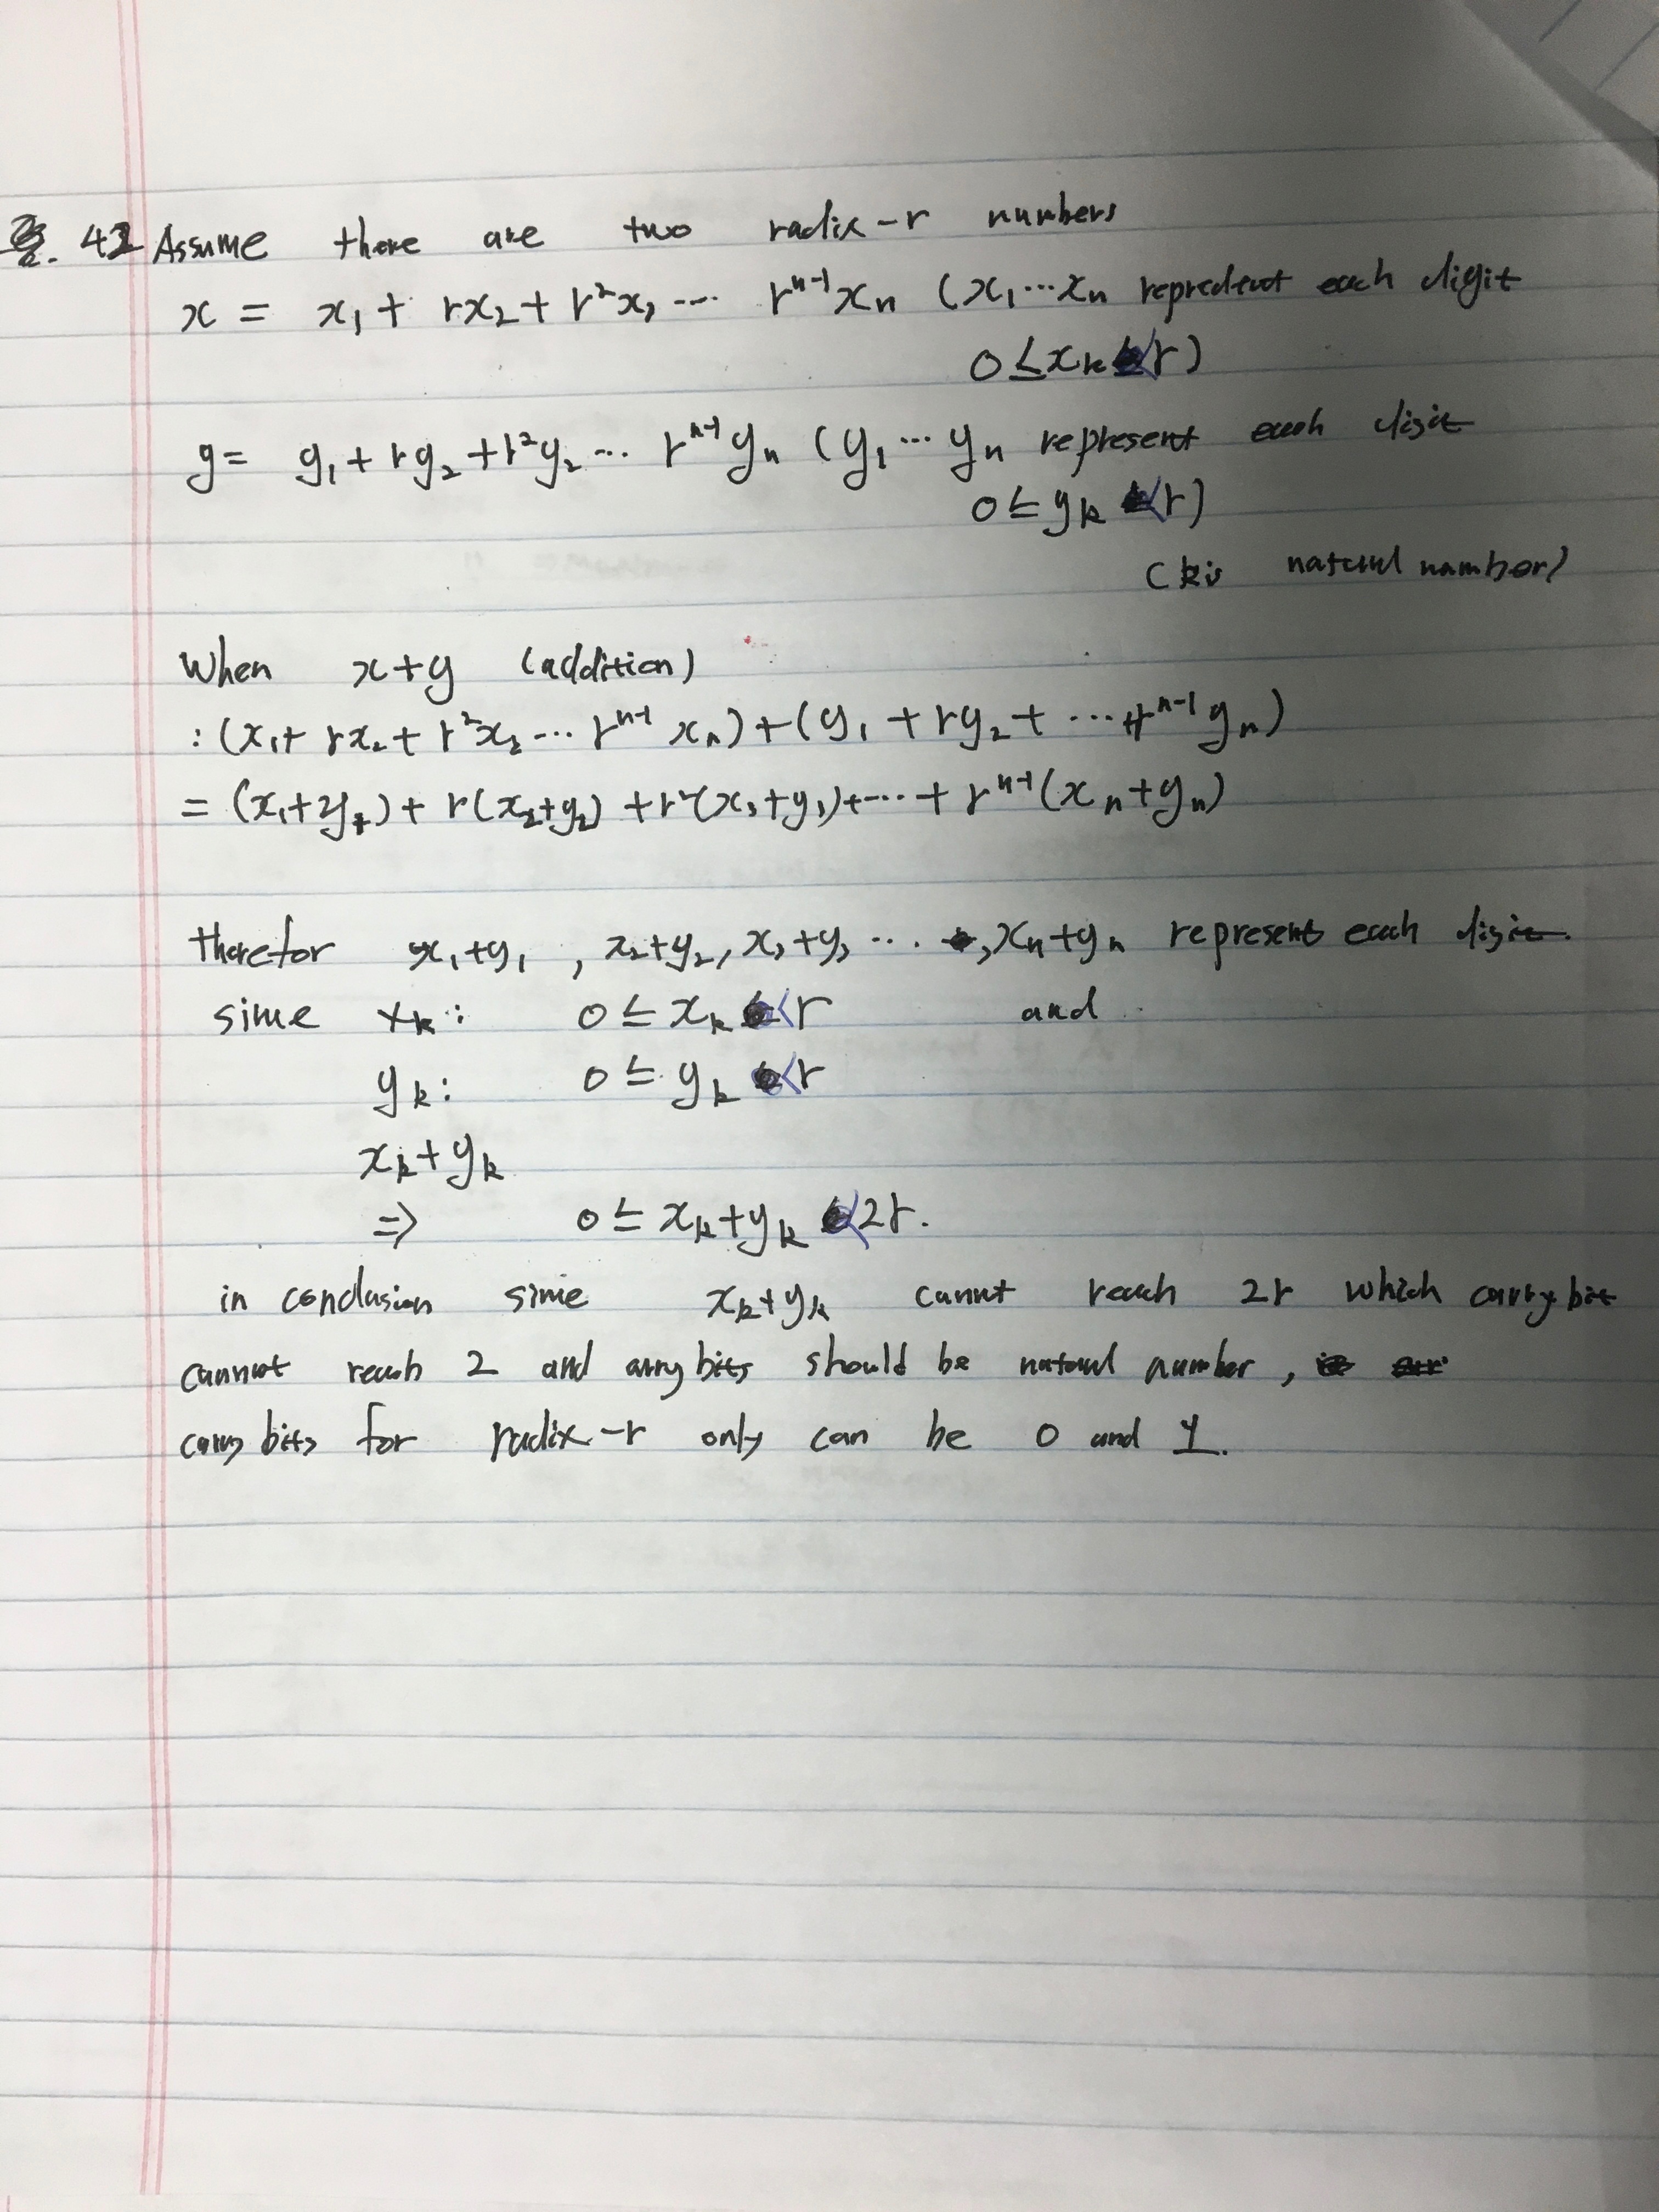 2. 42 Assume there are two radix-r numbers
x = x₁ + rx₂ + r²x₃ ... rⁿ⁻¹xₙ (x₁...xₙ repredent each digit
0 ≤ xₖ < r)
y = y₁ + ry₂ + r²y₂ ... rⁿ⁻¹yₙ (y₁ ... yₙ represent each digit
0 ≤ yₖ < r)
(k is natural number)
When x+y (addition)
: (x₁+ rx₂ + r²x₃ ... rⁿ⁻¹ xₙ) + (y₁ + ry₂ + ... + rⁿ⁻¹yₙ)
= (x₁+y₁) + r(x₂+y₂) + r²(x₃+y₃)+ ... + rⁿ⁻¹(xₙ+yₙ)
therefor x₁+y₁ , x₂+y₂, x₃+y₃ ... , xₙ+yₙ represent each digit.
sime xₖ: 0 ≤ xₖ < r and
yₖ: 0 ≤ yₖ < r
xₖ+yₖ
⇒ 0 ≤ xₖ+yₖ < 2r.
in conclusion sime xₖ+yₖ cannot reach 2r which carry bit
cannot reach 2 and carry bits should be natural number,
carry bits for radix-r only can be 0 and 1.